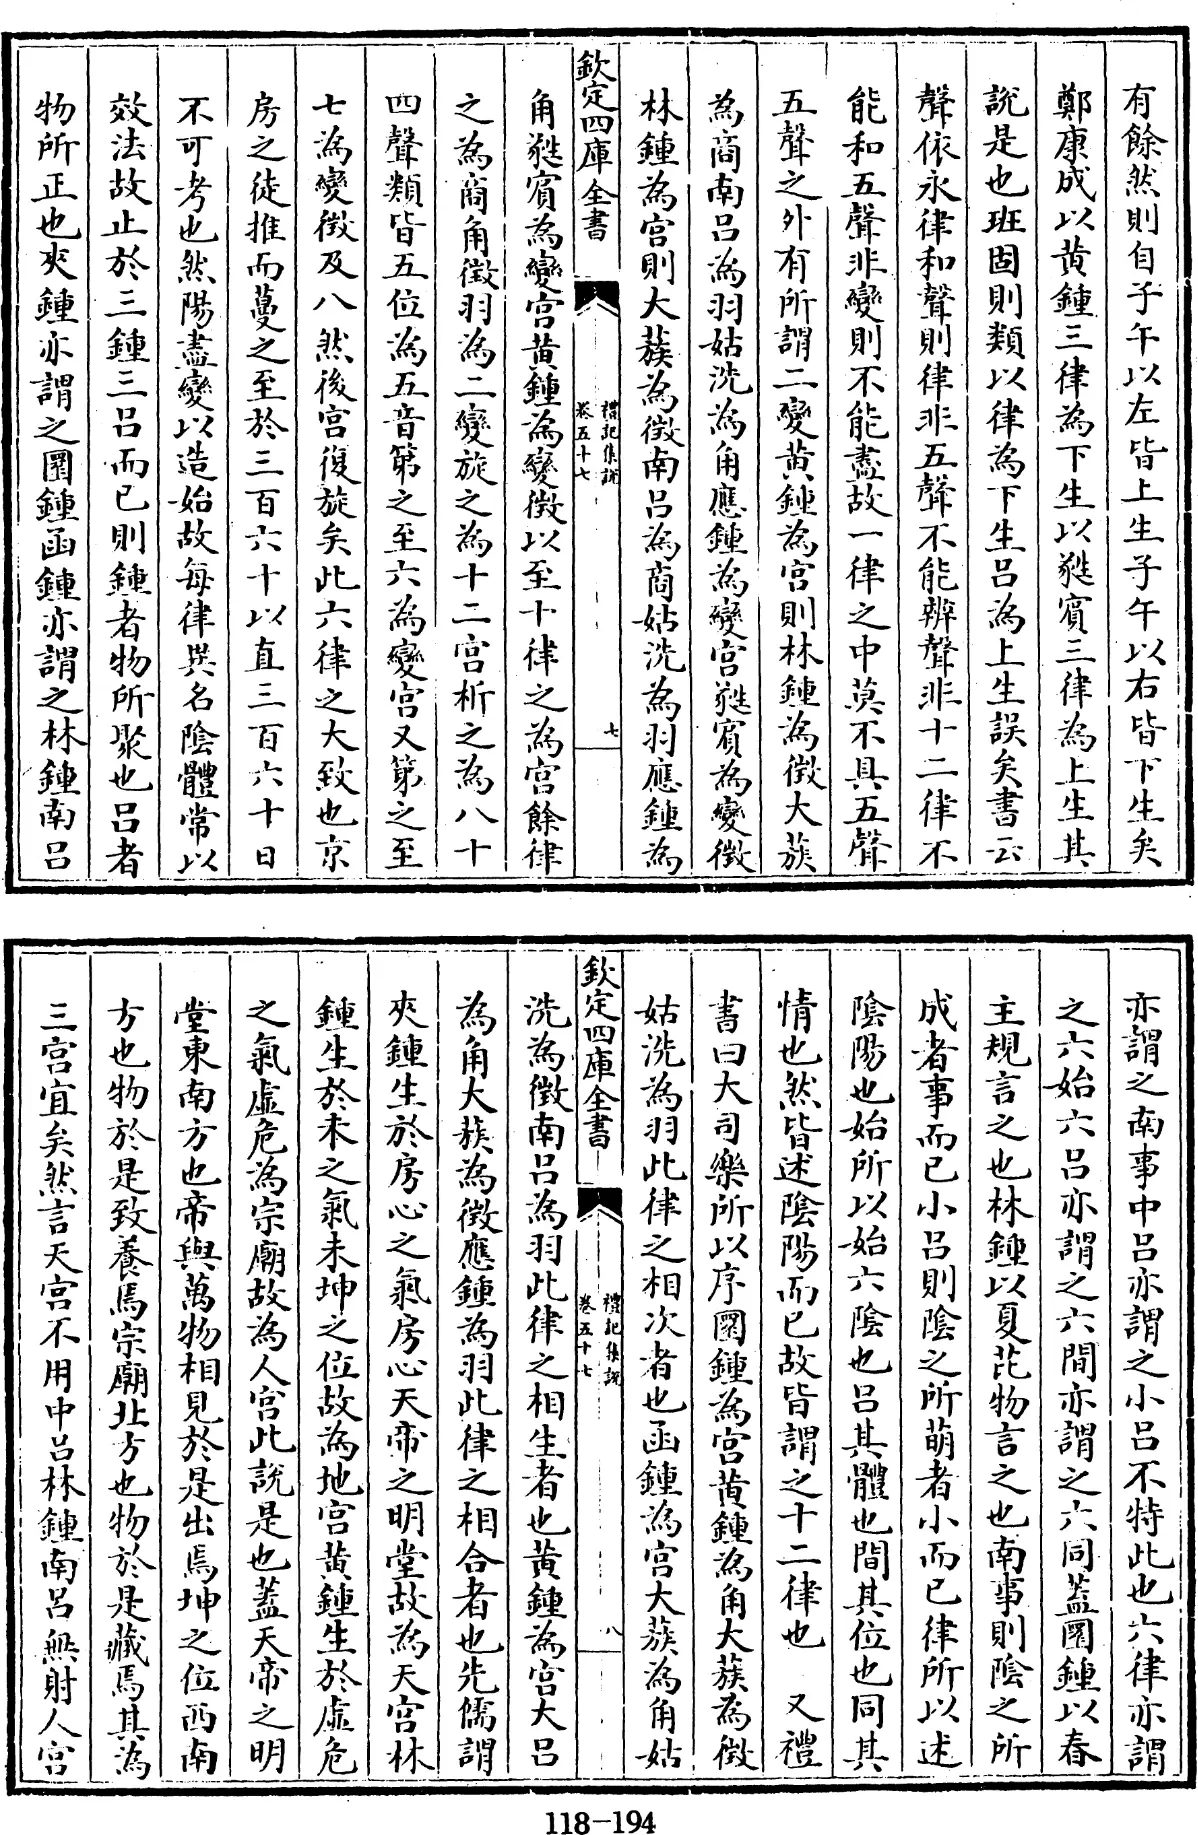 有餘然則自子午以左皆上生子午以右皆下生矣
鄭康成以黄鍾三律為下生以蕤賓三律為上生其
說是也班固則類以律為下生呂為上生誤矣書云
聲依永律和聲則律非五聲不能辨聲非十二律不
能和五聲非變則不能盡故一律之中莫不具五聲
五聲之外有所謂二變黄鍾為宫則林鍾為徵大蔟
為商南呂為羽姑洗為角應鍾為變宫蕤賓為變徵
林鍾為宫則大蔟為徵南呂為商姑洗為羽應鍾為
欽定四庫全書
禮記集說
卷五十七
七
角蕤賓為變宫黄鍾為變徵以至十律之為宫餘律
之為商角徵羽為二變旋之為十二宫析之為八十
四聲類皆五位為五音第之至六為變宫又第之至
七為變徵及八然後宫復旋矣此六律之大致也京
房之徒推而蔓之至於三百六十以直三百六十日
不可考也然陽盡變以造始故每律異名陰體常以
效法故止於三鍾三呂而已則鍾者物所聚也呂者
物所正也夾鍾亦謂之圜鍾函鍾亦謂之林鍾南呂
亦謂之南事中呂亦謂之小呂不特此也六律亦謂
之六始六呂亦謂之六間亦謂之六同蓋圜鍾以春
主規言之也林鍾以夏芘物言之也南事則陰之所
成者事而已小呂則陰之所萌者小而已律所以述
陰陽也始所以始六陰也呂其體也間其位也同其
情也然皆述陰陽而已故皆謂之十二律也　又禮
書曰大司樂所以序圜鍾為宫黄鍾為角大蔟為徵
姑洗為羽此律之相次者也函鍾為宫大蔟為角姑
欽定四庫全書
禮記集說
卷五十七
八
洗為徵南呂為羽此律之相生者也黄鍾為宫大呂
為角大蔟為徵應鍾為羽此律之相合者也先儒謂
夾鍾生於房心之氣房心天帝之明堂故為天宫林
鍾生於未之氣未坤之位故為地宫黄鍾生於虛危
之氣虛危為宗廟故為人宫此說是也蓋天帝之明
堂東南方也帝與萬物相見於是出焉坤之位西南
方也物於是致養焉宗廟北方也物於是藏焉其為
三宫宜矣然言天宫不用中呂林鍾南呂無射人宫
118-194